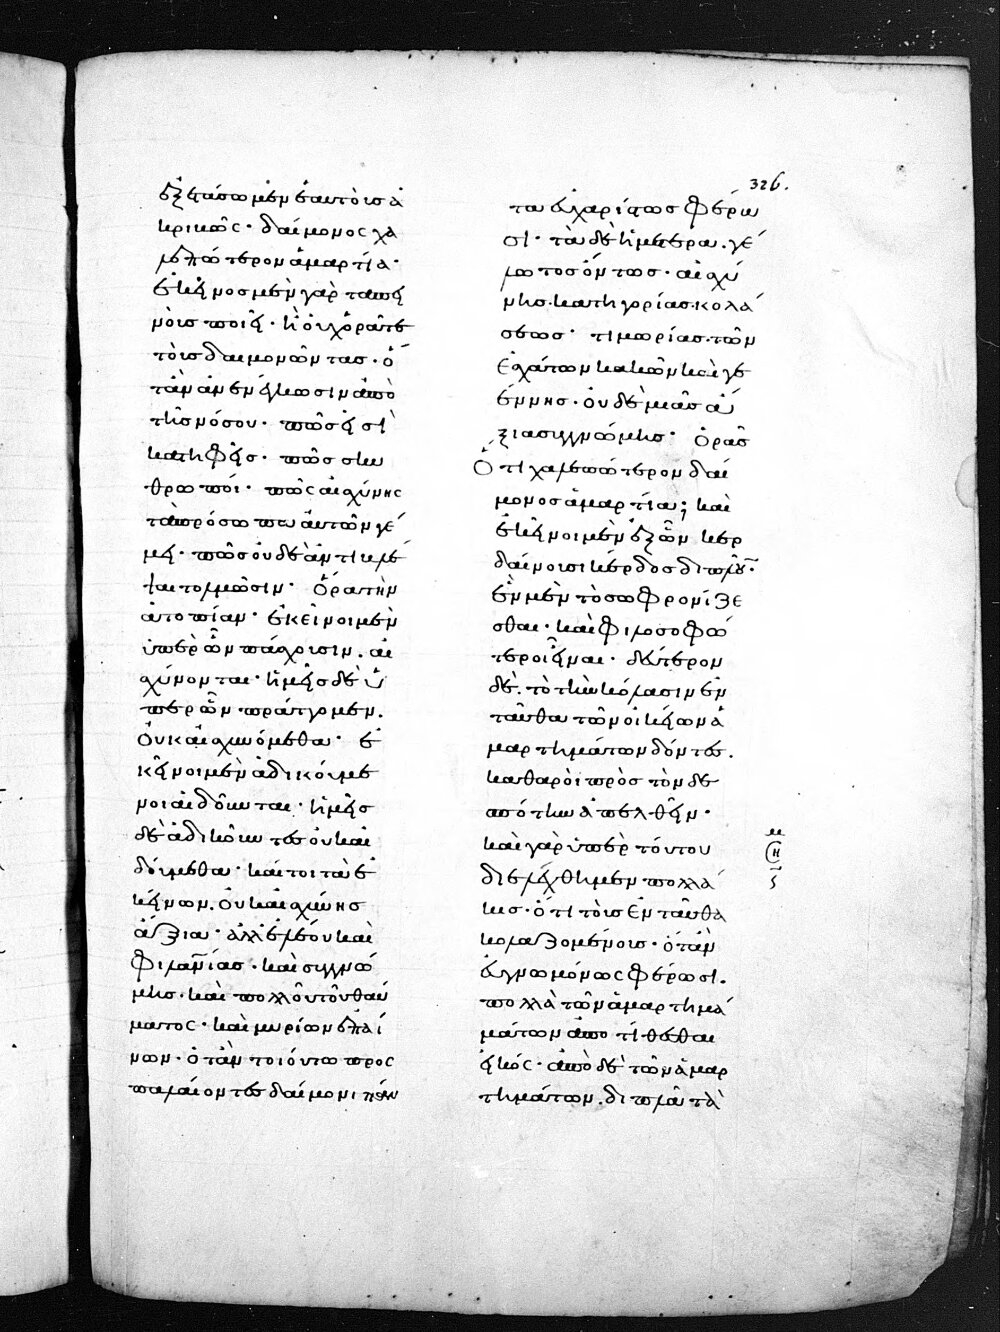 326.
ἐξετάσωμεν ἑαυτοῖς ἀ
κριβῶς· δαίμονος χα
λεπώτερον ἁμαρτία·
ἐκεῖνος μὲν γὰρ ταπει
νοὺς ποιεῖ· ἢ οὐχ ὁρᾶτε
τοὺς δαιμονῶντας· ὅ
τὰν ἀνενέγκωσιν ἀπὸ
τῆς νόσου· πῶς εἰσὶ
κατηφεῖς· πῶς σκυ
θρωποί· πῶς αἰσχύνης
τὰ πρόσωπα αὐτῶν γέ
μει· πῶς οὐδὲ ἀντιβλέ
ψαι τολμῶσιν· ὅρα τὴν
ἀτοπίαν· ἐκεῖνοι μὲν
ὑπὲρ ὧν πάσχουσιν. αἰ
σχύνονται· ἡμεῖς δὲ ὑ
πὲρ ὧν πράττομεν.
οὐκ αἰσχυνόμεθα· ἐ
κεῖνοι μὲν ἀδικούμε
νοι αἰδοῦνται· ἡμεῖς
δὲ ἀδικοῦντες οὐκ αἰ
δούμεθα· καίτοι τὰ ἐ
κείνων. οὐκ αἰσχύνης
ἄξια· ἀλλ' ἐλέου καὶ
φιλανίας· καὶ συγγνώ
μης· καὶ πολλοῦ τοῦ θαύ
ματος· καὶ μυρίων ἐπαί
νων· ὁτὰν τοιούτω προσ
παλαίοντες δαίμονι πάν
τα εὐχαρίστως φέρω
σι· τὰ δὲ ἡμέτερα. γέ
λωτος ὄντως· αἰσχύ
νης· κατηγορίας· κολά
σεως· τιμωρίας· τῶν
ἐσχάτων κακῶν καὶ γε
έννης· οὐδὲ μιᾶς ἄ
ξια συγγνώμης· ὁρᾶς
ὅτι χαλεπώτερον δαί
μονος ἁμαρτία; καὶ
ἐκεῖνοι μὲν ἐξ ὧν κερ
δαίνουσι κέρδος διπλοῦν·
ἓν μὲν τὸ σωφρονίζε
σθαι· καὶ φιλοσοφώ
τεροι εἶναι· δεύτερον
δὲ. τὸ τὴν κόλασιν ἐν
ταῦθα τῶν οἰκείων ἁ
μαρτημάτων δόντες.
καθαροὶ πρὸς τὸν δε
σπότην ἀπελθεῖν·
καὶ γὰρ ὑπὲρ τούτου
διελέχθημεν πολλά
κις· ὅτι τοῖς ἐνταῦθα
κολαζομένοις· ὁτὰν
εὐγνωμόνως φέρωσι.
πολλὰ τῶν ἁμαρτημά
μάτων ἀποτίθεσθαι
εἰκός· ἀπὸ δὲ τῶν ἁμαρ
τημάτων. διπλᾶ τὰ